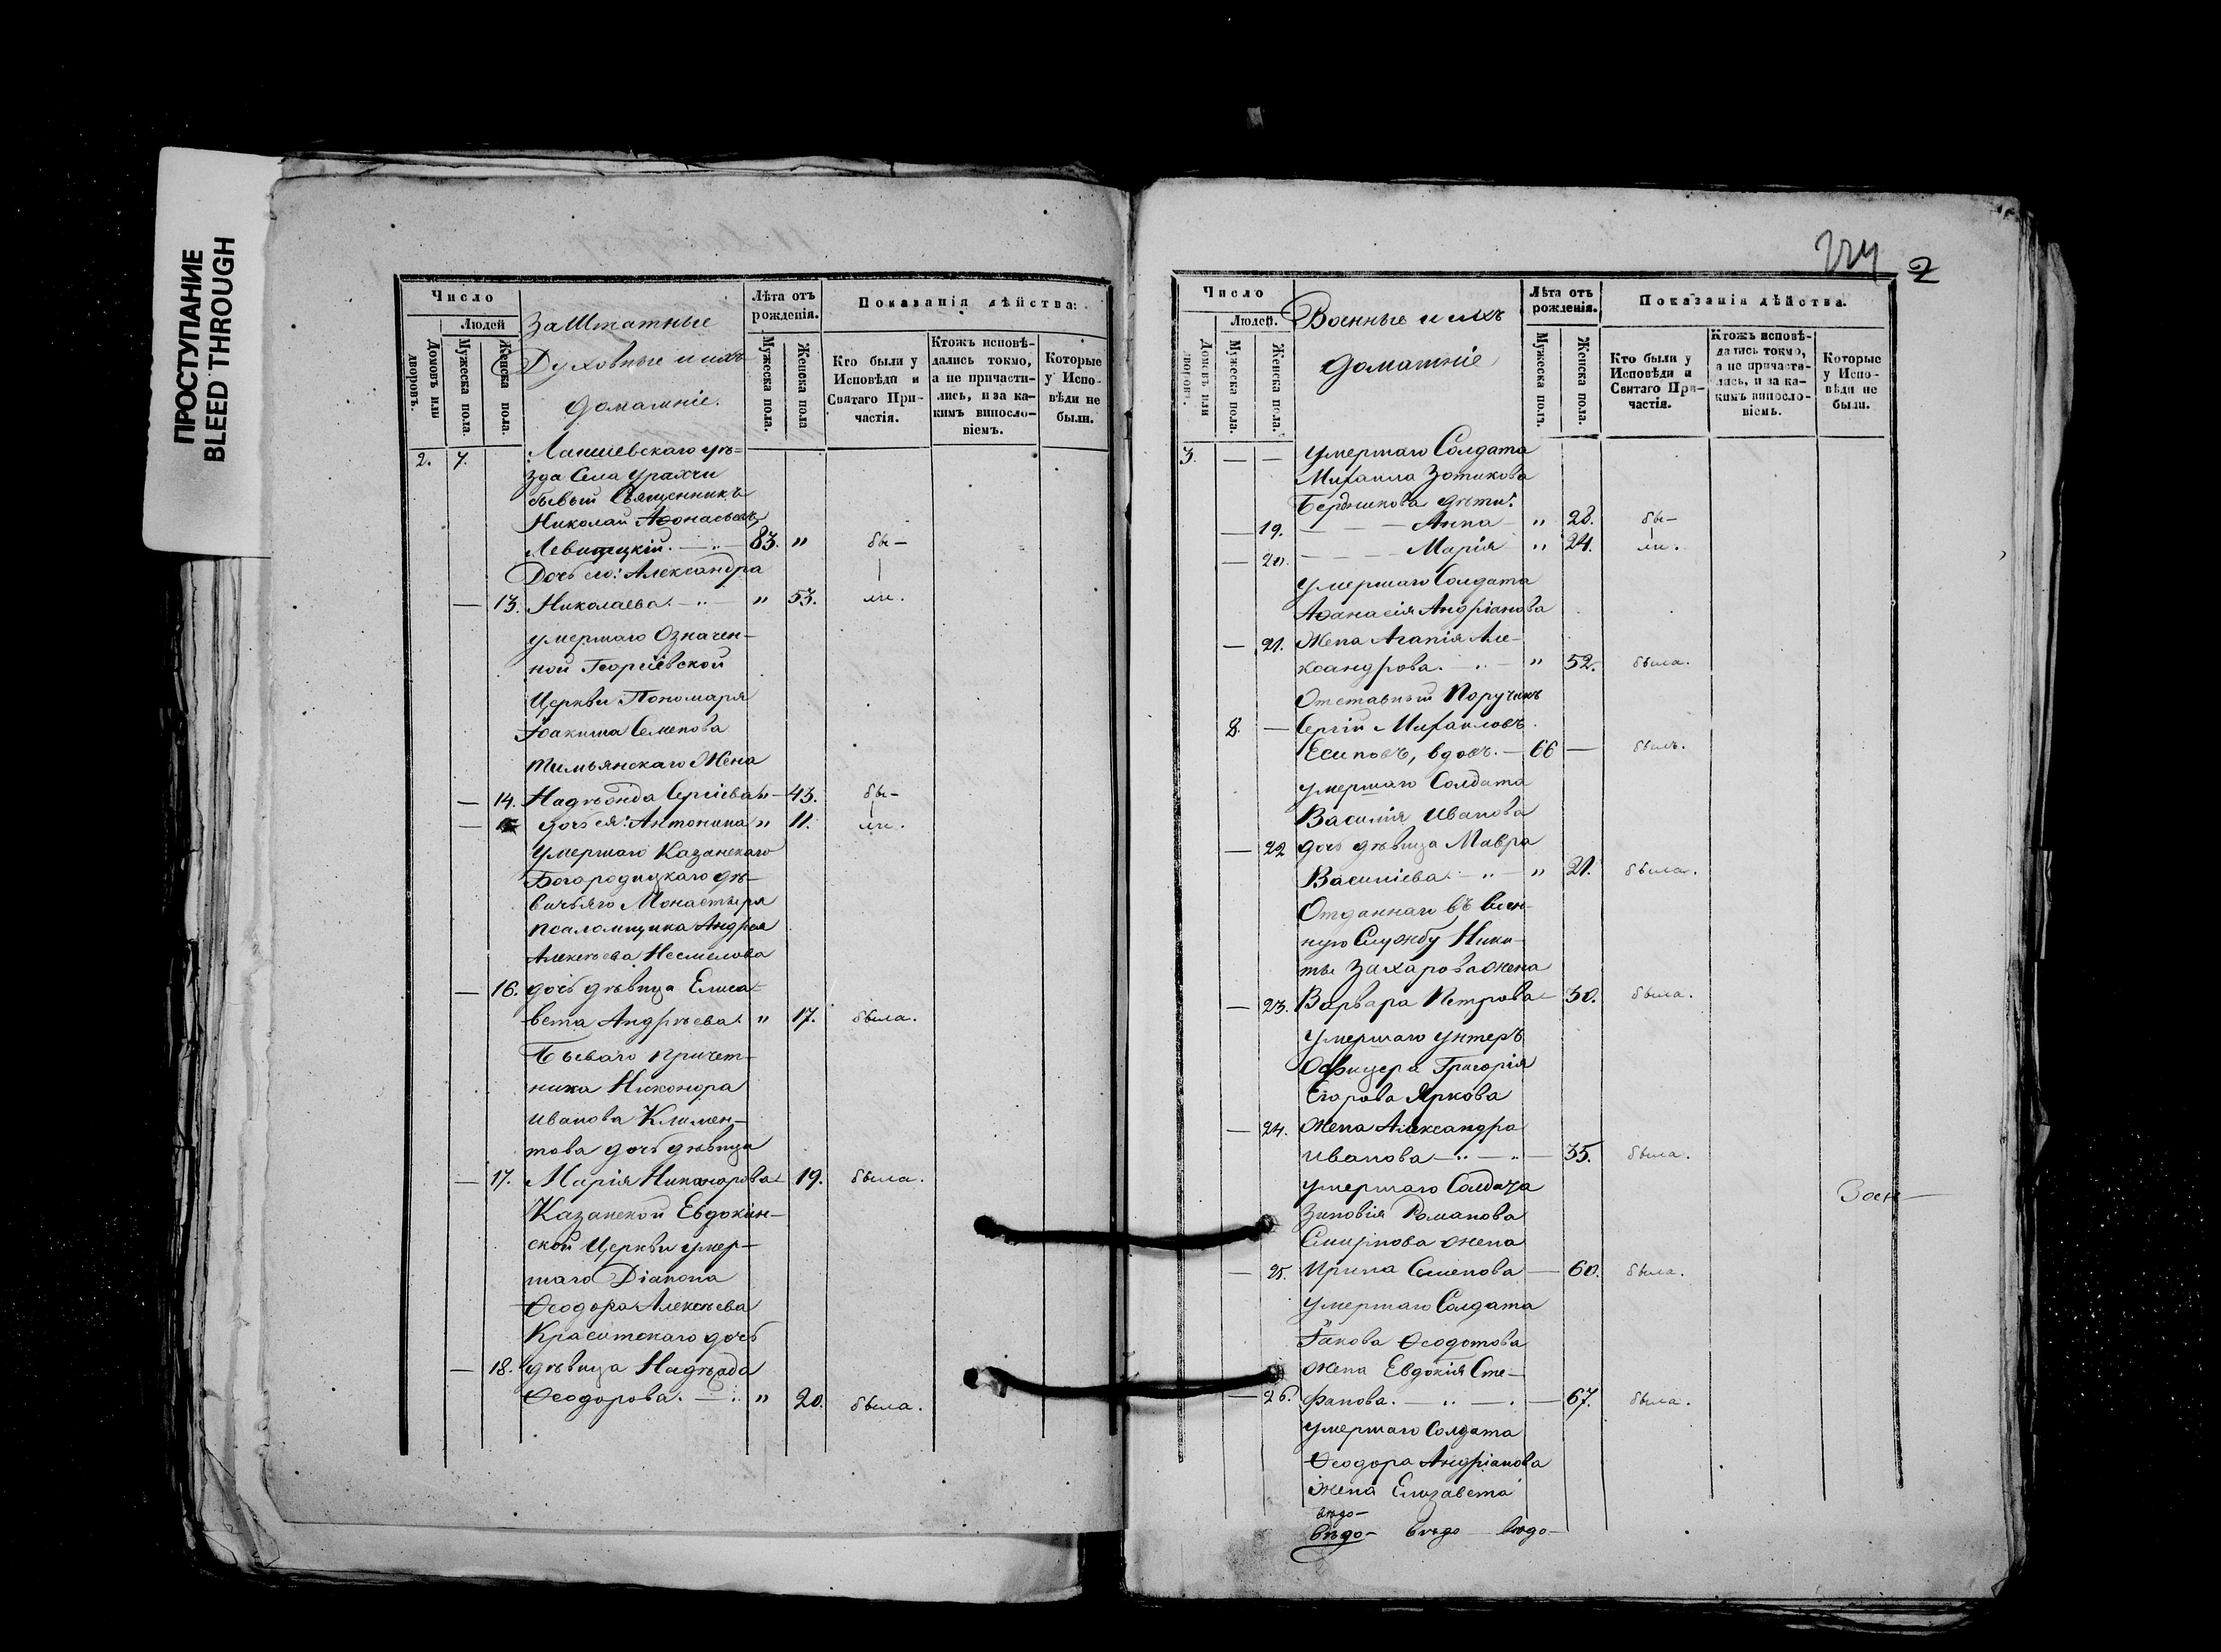 ПРОСТУПАНИЕ
BLEED THROUGH
Число
Людей
Домовъ или дворовъ.
Мужеска пола.
Женска пола.
Заштатные
Духовные и ихъ
домашніе.
Лѣта отъ рожденія.
Мужеска пола.
Женска пола
Показанія дѣйства:
Кто были у Исповѣди и Святаго Причастія.
Ктожъ исповѣдались токмо, а не причастились, и за какимъ винословіемъ.
Которые у Исповѣди не были.
2. 7. Лаишевскаго уѣ=
зда Села Урахчи
бывый Священникъ
Николай Аѳонасьевъ
Левитцкій. 83. " бы-
Дочь его: Александра
— 13. Николаева. " 53. ли.
умершаго Означен-
ной Георгіевской
Церкви Пономаря
Іоакима Семенова
Тимьянскаго Жена
— 14. Надѣжда Сергіева " 43. бы-
— 15 дочь ея: Антонина " 11. ли.
Умершаго Казанскаго
Богородицкаго дѣ-
вичьяго Монастыря
псаломщика Андрея
Алексѣева Несмелова
— 16. дочь дѣвица Елиса-
вета Андрѣева. " 17. была.
Бывшаго причет-
ника Никонора
Иванова Климен-
това дочь дѣвица
— 17. Марія Никонорова 19. была.
Казанской Евдокіин-
ской Церкви умер-
шаго Діакона
Ѳеодора Алексѣева
дочь
— 18. дѣвица Надѣжда
Ѳеодорова. " 20. была.
224 2
Число
Людей.
Домовъ или дворовъ.
Мужеска пола.
Женска пола.
Военные и ихъ
домашніе
Лѣта отъ рожденія.
Мужеска пола.
Женска пола.
Показанія дѣйства.
Кто были у Исповѣди и Святаго Причастія.
Ктожъ исповѣдались токмо, а не причастились, и за какимъ винословіемъ.
Которые у Исповѣди не были.
3. — — умершаго Солдата
Михаила Зотикова
Бердникова дѣти:
— 19. — — — Анна " 28. бы-
— 20. — — — Марія " 24. ли.
умершаго Солдата
Аѳанасія Андріанова
— 21. Жена Агапія Але-
ксандрова. " 52. была.
Отставный Поручикъ
8. — Сергій Михаиловъ
Есиповъ, вдовъ. — 66 — былъ.
умершаго Солдата
Василія Иванова
— 22 дочь дѣвица Мавра
Василіева. " 21. была.
Отданнаго въ воен-
ную Службу Ники-
ты Захарова жена
— 23. Варвара Петрова 30. была.
Умершаго Унтеръ
Офицера Григорія
Егорова Яркова
— 24. жена Александра
Иванова — 35. была.
умершаго Солдата
Зиновія Романова
Смирнова жена
— 25. Ирина Семенова — 60. была.
умершаго Солдата
Іакова Ѳеодотова
жена Евдокія Сте-
— 26. фанова. — 67. была.
умершаго Солдата
Ѳеодора Андріанова
жена Елизавета
вѣдо-
вѣдо- вѣдо- вѣдо-